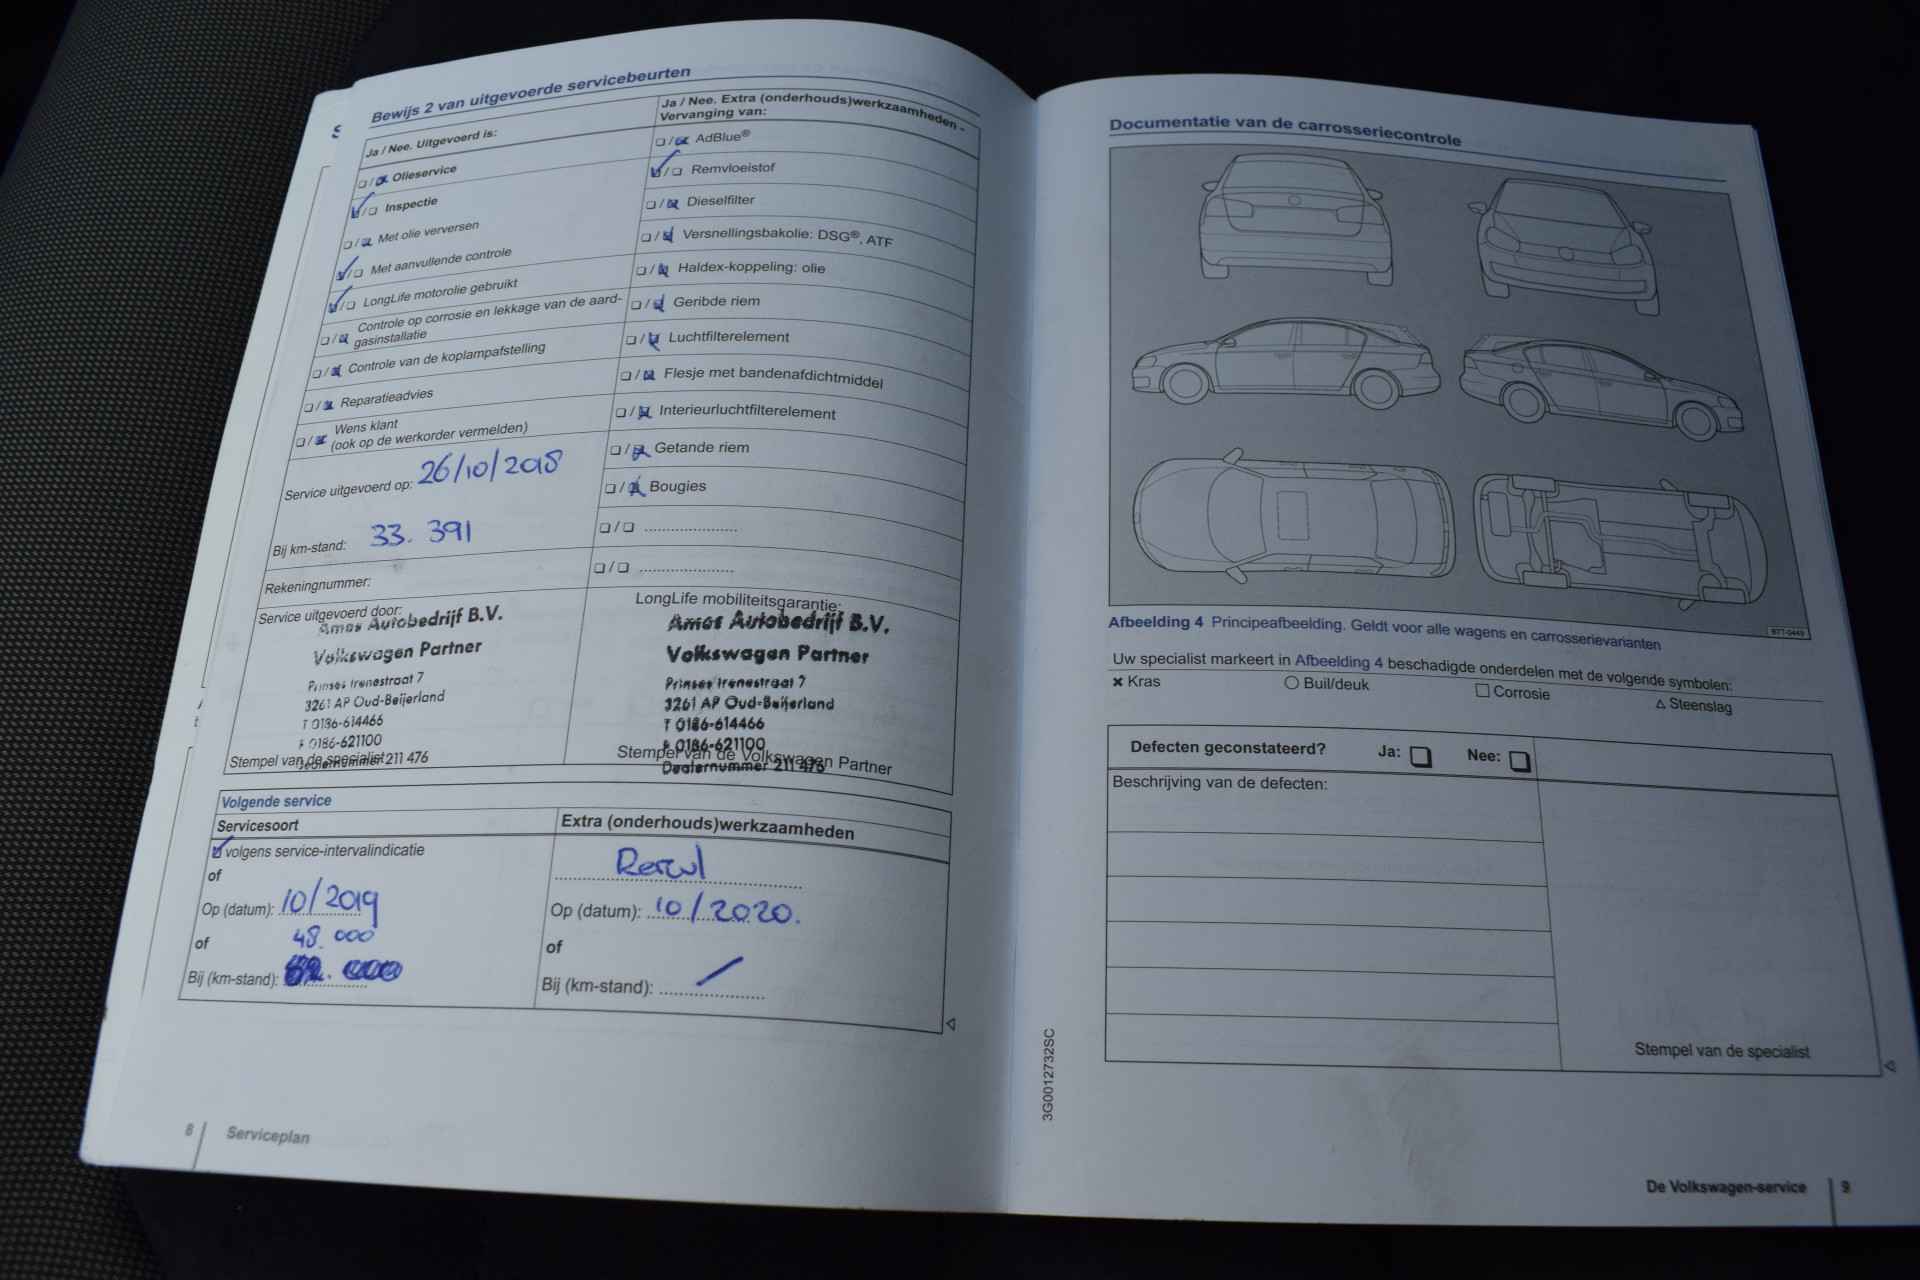 Bewijs 2 van uitgevoerde servicebeurten
Ja / Nee. Uitgevoerd is:
Olieservice
Inspectie
Met olie verversen
Met aanvullende controle
LongLife motorolie gebruikt
Controle op corrosie en lekkage van de aard-
gasinstallatie
Controle van de koplampafstelling
Reparatieadvies
Wens klant
(ook op de werkorder vermelden)
Service uitgevoerd op: 26/10/2018
Bij km-stand: 33.391
Rekeningnummer:
Service uitgevoerd door:
Amos Autobedrijf B.V.
Volkswagen Partner
Prinses Irenestraat 7
3261 AP Oud-Beijerland
T 0186-614466
F 0186-621100
Dealernummer 211 476
Stempel van de specialist
Ja / Nee. Extra (onderhouds)werkzaamheden -
Vervanging van:
AdBlue®
Remvloeistof
Dieselfilter
Versnellingsbakolie: DSG®, ATF
Haldex-koppeling: olie
Geribde riem
Luchtfilterelement
Flesje met bandenafdichtmiddel
Interieurluchtfilterelement
Getande riem
Bougies
LongLife mobiliteitsgarantie:
Amos Autobedrijf B.V.
Volkswagen Partner
Prinses Irenestraat 7
3261 AP Oud-Beijerland
T 0186-614466
F 0186-621100
Stempel van de Volkswagen Partner
Dealernummer 211 476
Volgende service
Servicesoort
volgens service-intervalindicatie
of
Op (datum): 10/2019
of
48.000
Bij (km-stand):
Extra (onderhouds)werkzaamheden
Op (datum): 10/2020.
of
Bij (km-stand): /
8 Serviceplan
Documentatie van de carrosseriecontrole
B7T-0449
Afbeelding 4 Principeafbeelding. Geldt voor alle wagens en carrosserievarianten
Uw specialist markeert in Afbeelding 4 beschadigde onderdelen met de volgende symbolen:
× Kras ○ Buil/deuk □ Corrosie △ Steenslag
Defecten geconstateerd? Ja: Nee:
Beschrijving van de defecten:
Stempel van de specialist
3G0012732SC
De Volkswagen-service 9